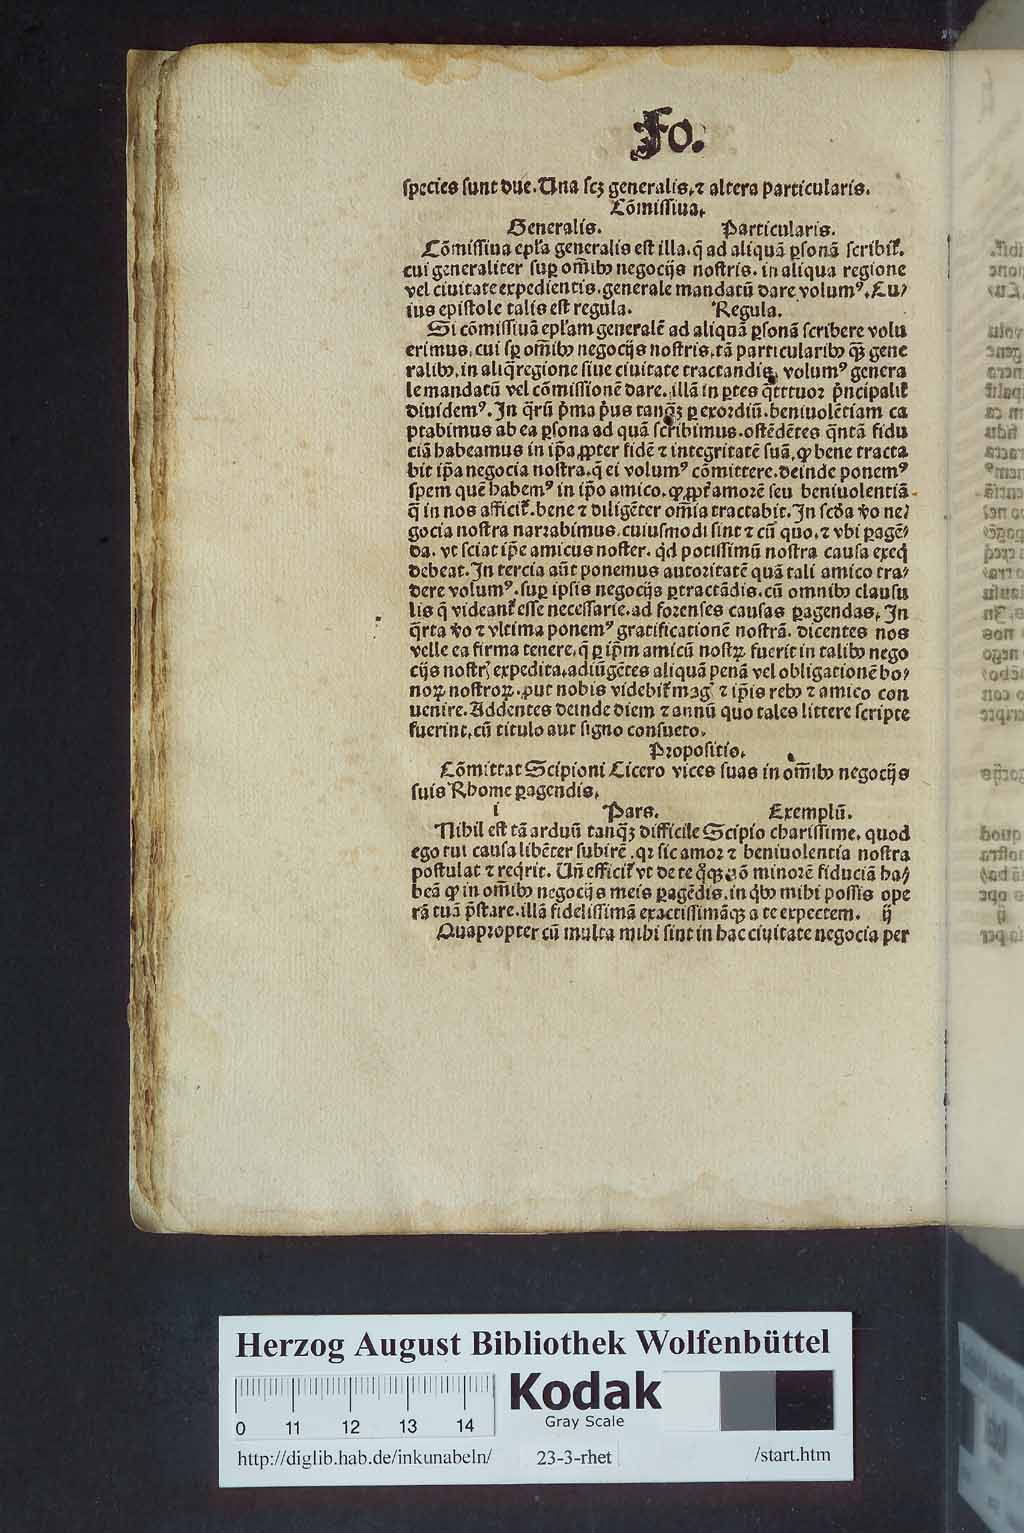 Fo.
species sunt due. Una scȝ generalis. ⁊ altera particularis.
Cōmissiua.
Generalis. Particularis.
Cōmissiua epl'a generalis est illa. q̄ ad aliquā ꝑsonā scribit᷑.
cui generaliter suꝑ om̄ibꝰ negocijs nostris. in aliqua regione
vel ciuitate expedientis. generale mandatū dare volumꝰ. Cu⸗
ius epistole talis est regula. Regula.
Si cōmissiuā epl'am generalē ad aliquā ꝑsonā scribere volu
erimus. cui sꝑ om̄ibꝰ negocijs nostris. tā particularibꝰ qꝫ̄ gene
ralibꝰ. in aliq̄ regione siue ciuitate tractandis, volumꝰ genera
le mandatū vel cōmissionē dare. illā in ꝑtes q̄ttuor p̀ncipalit᷑
diuidemꝰ. In q̄rū p̀ma p̀us tanqꝫ̄ ꝑ exordiū. beniuolētiam ca
ptabimus ab ea ꝑsona ad quā scribimus. ostēdētes q̄ntā fidu
ciā habeamus in ip̄a ꝓpter fidē ⁊ integritatē suā. ꝙ bene tracta
bit ip̄a negocia nostra. q̄ ei volumꝰ cōmittere. deinde ponemꝰ
spem quē habemꝰ in ip̄o amico. ꝙ ꝓpt᷑ amorē seu beniuolentiā
q̄ in nos afficit᷑. bene ⁊ diligēter om̄ia tractabit. In scd̄a v̊o ne⸗
gocia nostra narrabimus. cuiusmodi sint ⁊ cū quo. ⁊ vbi ꝑagē⸗
da. vt sciat ip̄e amicus noster. qd̀ potissimū nostra causa exeq̀
debeat. In tercia aūt ponemus autoritatē quā tali amico tra⸗
dere volumꝰ. suꝑ ipsis negocijs ꝑtractādis. cū omnibꝰ clausu
lis q̄ videant᷑ esse necessarie. ad forenses causas ꝑagendas. In
q̄rta v̊o ⁊ vltima ponemꝰ gratificationē nostrā. dicentes nos
velle ea firma tenere. q̄ ꝑ ip̄m amicū nostꝝ fuerit in talibꝰ nego
cijs nostrꝭ expedita. adiūgētes aliquā penā vel obligationē bo⸗
noꝝ nostroꝝ. ꝓut nobis videbit᷑ magꝭ ⁊ ip̄is rebꝰ ⁊ amico con
uenire. Addentes deinde diem ⁊ annū quo tales littere scripte
fuerint. cū titulo aut signo consueto.
Propositio.
Cōmittat Scipioni Cicero vices suas in om̄ibꝰ negocijs
suis Rhome ꝑagendis.
i Pars. Exemplū.
Nihil est tā arduū tanqꝫ̄ difficile Scipio charissime. quod
ego tui causa libēter subirē. qꝛ sic amor ⁊ beniuolentia nostra
postulat ⁊ req̀rit. Un̄ efficit᷑ vt de te q̊qꝫ nō minorē fiduciā ha⸗
beā ꝙ in om̄ibꝰ negocijs meis ꝑagēdis. in q̀bꝰ mihi possis ope
rā tuā p̄stare. illā fidelissimā exactissimāqꝫ a te expectem. ij
Quapropter cū multa mihi sint in hac ciuitate negocia per
Herzog August Bibliothek Wolfenbüttel
Kodak
Gray Scale
0 11 12 13 14
http://diglib.hab.de/inkunabeln/ 23-3-rhet /start.htm